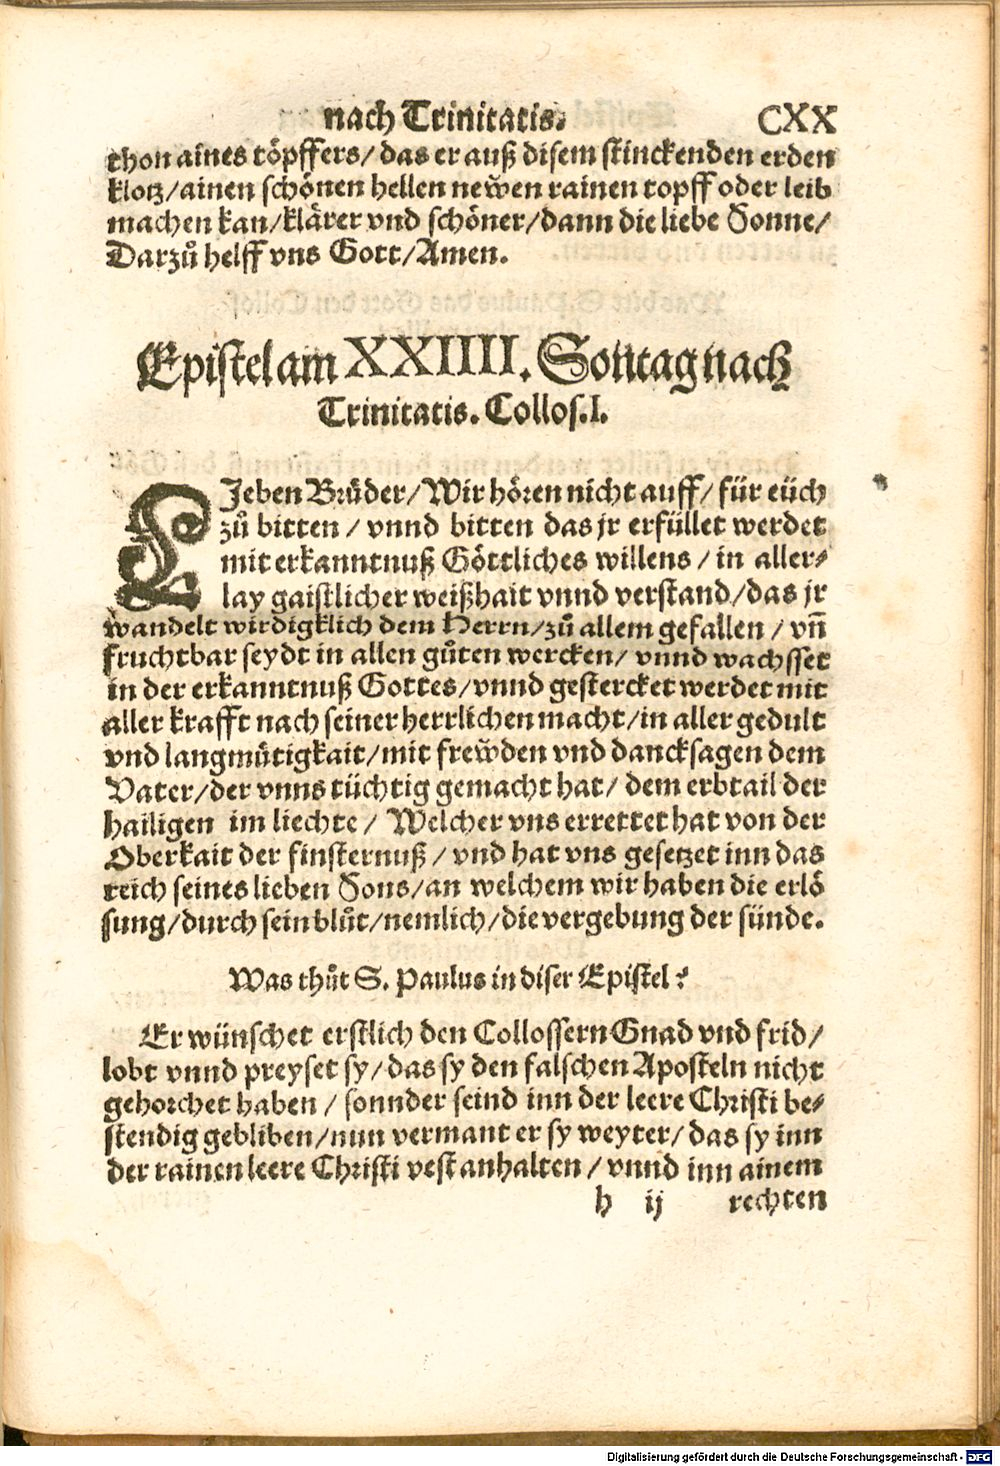 nach Trinitatis. CXX
thon aines töpffers/ das er auß disem stinckenden erden
klotz/ainen schönen hellen newen rainen topff oder leib
machen kan/klärer vnd schöner/dann die liebe Sonne/
Darzů helff vns Gott/Amen.
Epistel am XXIIII. Sontag nach
Trinitatis. Collos.I.
LJeben Brüder/Wir hören nicht auff/ für eüch
zů bitten / vnnd bitten das jr erfüllet werdet
mit erkanntnuß Göttliches willens / in aller⸗
lay gaistlicher weißhait vnnd verstand/das jr
wandelt wirdigklich dem Herrn/zů allem gefallen / vn̄
fruchtbar seydt in allen gůten wercken/ vnnd wachsset
in der erkanntnuß Gottes/vnnd gestercket werdet mit
aller krafft nach seiner herrlichen macht/in aller gedult
vnd langmütigkait/mit frewden vnd dancksagen dem
Vater/der vnns tüchtig gemacht hat/ dem erbtail der
hailigen im liechte/ Welcher vns errettet hat von der
Oberkait der finsternuß / vnd hat vns gesetzet inn das
reich seines lieben Sons/an welchem wir haben die erlö
sung/durch sein blůt/nemlich/die vergebung der sünde.
Was thůt S. Paulus in diser Epistel?
Er wünschet erstlich den Collossern Gnad vnd frid/
lobt vnnd preyset sy/das sy den falschen Aposteln nicht
gehorchet haben / sonnder seind inn der leere Christi be⸗
stendig gebliben/nun vermant er sy weyter/ das sy inn
der rainen leere Christi vest anhalten / vnnd inn ainem
h ij rechten
Digitalisierung gefördert durch die Deutsche Forschungsgemeinschaft - DFG